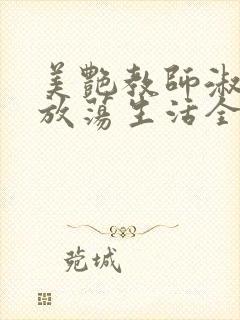 美艷教師淑
放蕩生活全
菀城